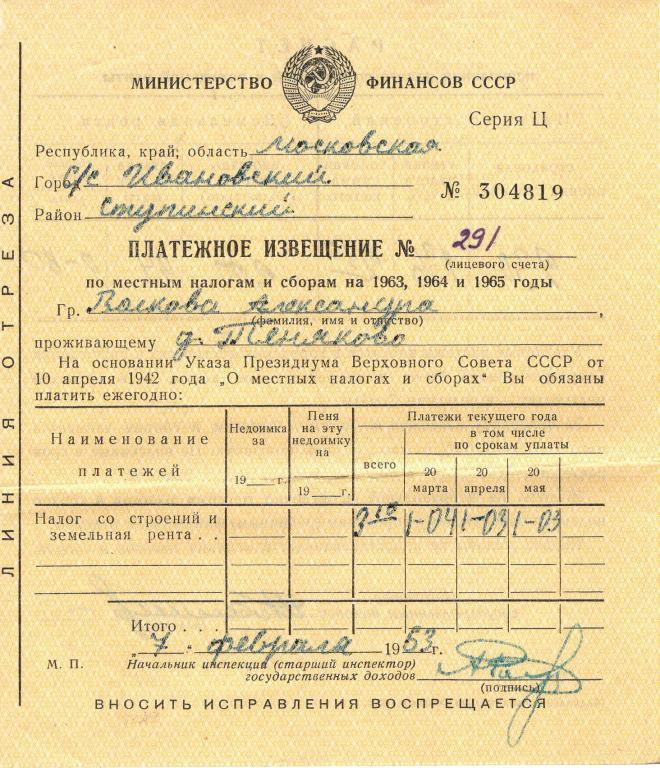 МИНИСТЕРСТВО ФИНАНСОВ СССР
Серия Ц
Республика, край, область Московская
Город с/с Ивановский
№ 304819
Район Ступинский
ПЛАТЕЖНОЕ ИЗВЕЩЕНИЕ № 291
(лицевого счета)
по местным налогам и сборам на 1963, 1964 и 1965 годы
Гр. Волкова Александра,
(фамилия, имя и отчество)
проживающему д. Теняково
На основании Указа Президиума Верховного Совета СССР от
10 апреля 1942 года „О местных налогах и сборах“ Вы обязаны
платить ежегодно:
Наименование платежей
Недоимка за 19__г.
Пеня на эту недоимку на 19__г.
Платежи текущего года
всего
в том числе по срокам уплаты
20 марта
20 апреля
20 мая
Налог со строений и
земельная рента . . 3 10 1-04 1-03 1-03
Итого . . .
„7“ февраля 1963г.
М. П.
Начальник инспекции (старший инспектор)
государственных доходов
(подпись)
ВНОСИТЬ ИСПРАВЛЕНИЯ ВОСПРЕЩАЕТСЯ
ЛИНИЯ ОТРЕЗА